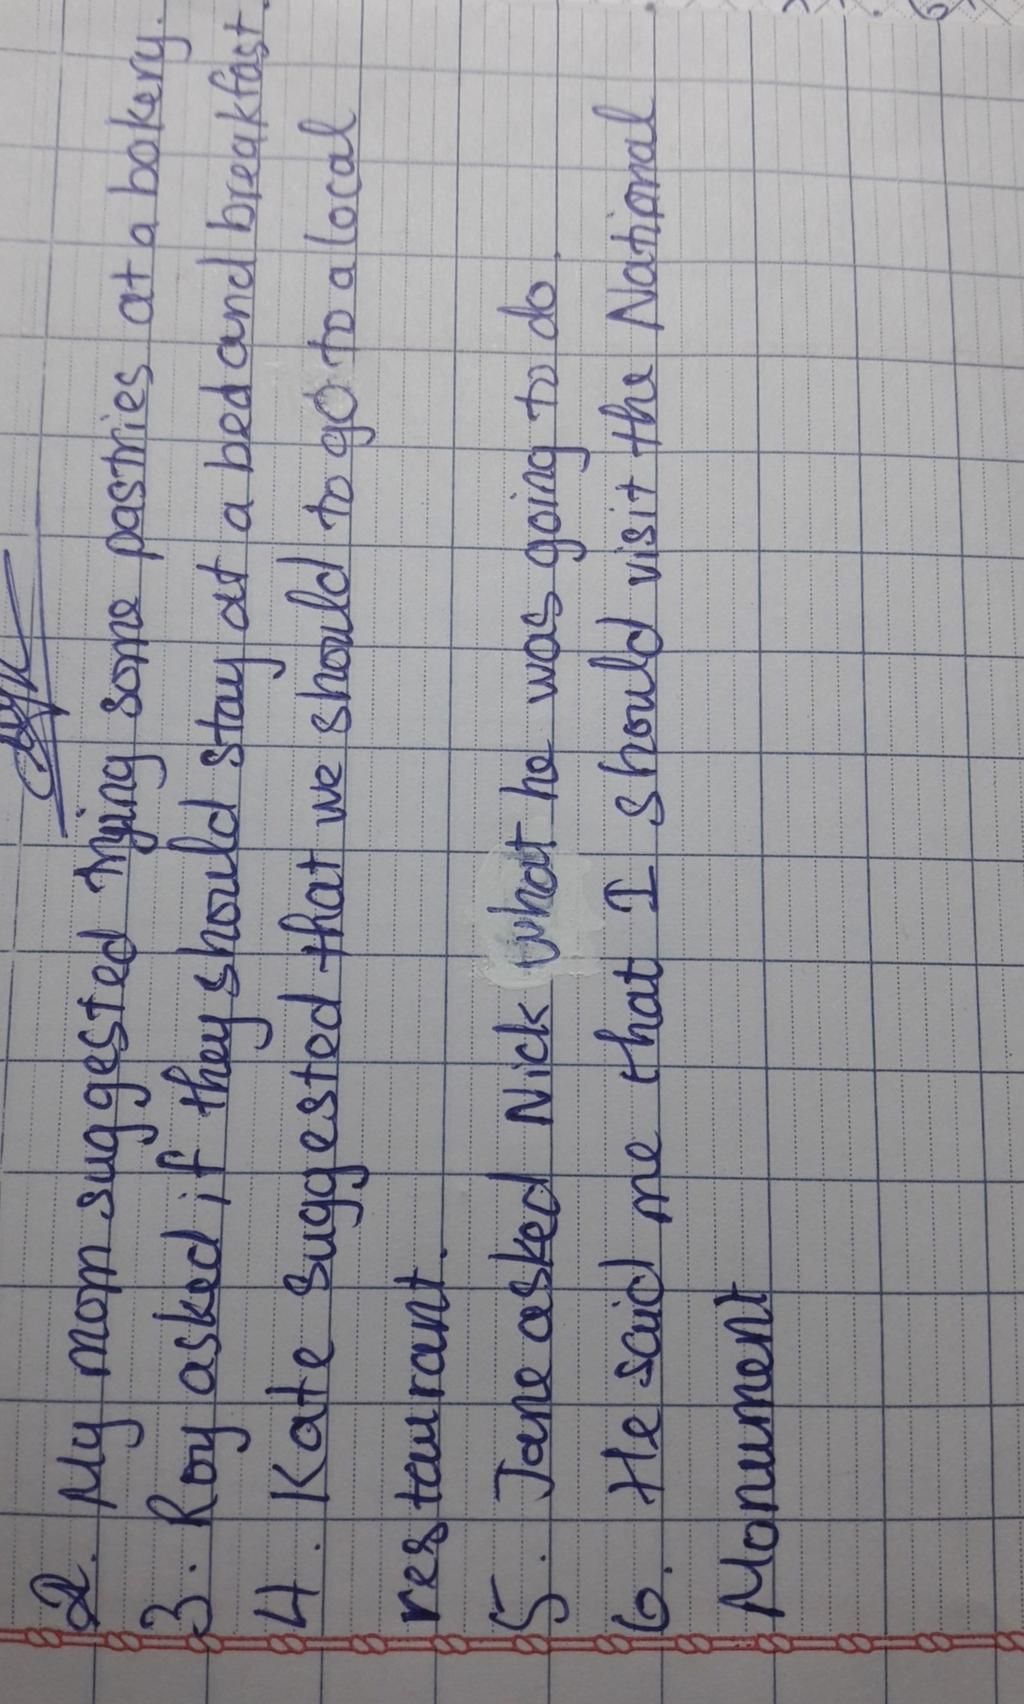 2. My mom suggested trying some pastries at a bakery.
3. Roy asked if they should stay at a bed and breakfast.
4. Kate suggested that we should to go to a local
restaurant.
5. Jane asked Nick what he was going to do.
6. He said me that I should visit the National
Monument